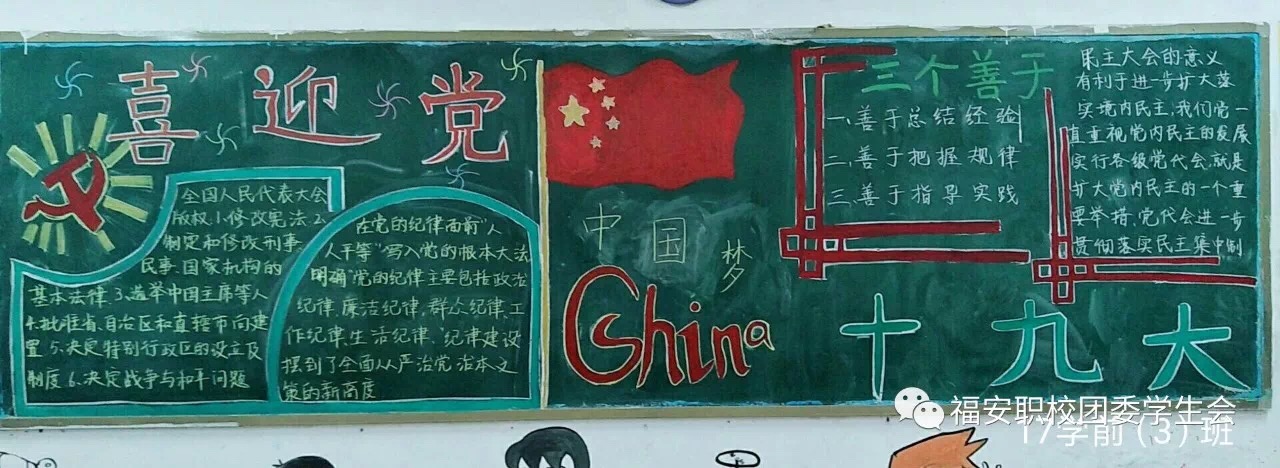 喜迎党
全国人民代表大会
版权.1.修改宪法2.
制定和修改刑事
民事.国家机构的
基本法律.3.选举中国主席等人
4.批准省.自治区和直辖市向建
置 5.决定特别行政区的设立及
制度 6.决定战争与和平问题
在党的纪律面前"人
人平等"写入党的根本大法
明确党的纪律主要包括政治
纪律.廉洁纪律,群众纪律,工
作纪律.生活纪律.纪律建设
摆到了全面从严治党治本之
策的新高度
中国梦
China
三个善于
一.善于总结经验
二.善于把握规律
三.善于指导实践
民主大会的意义
有利于进一步扩大落
实境内民主,我们党一
直重视党内民主的发展
实行各级党代会,就是
扩大党内民主的一个重
要举措,党代会进一步
贯彻落实民主集中制
十九大
福安职校团委学生会
17学前(3)班